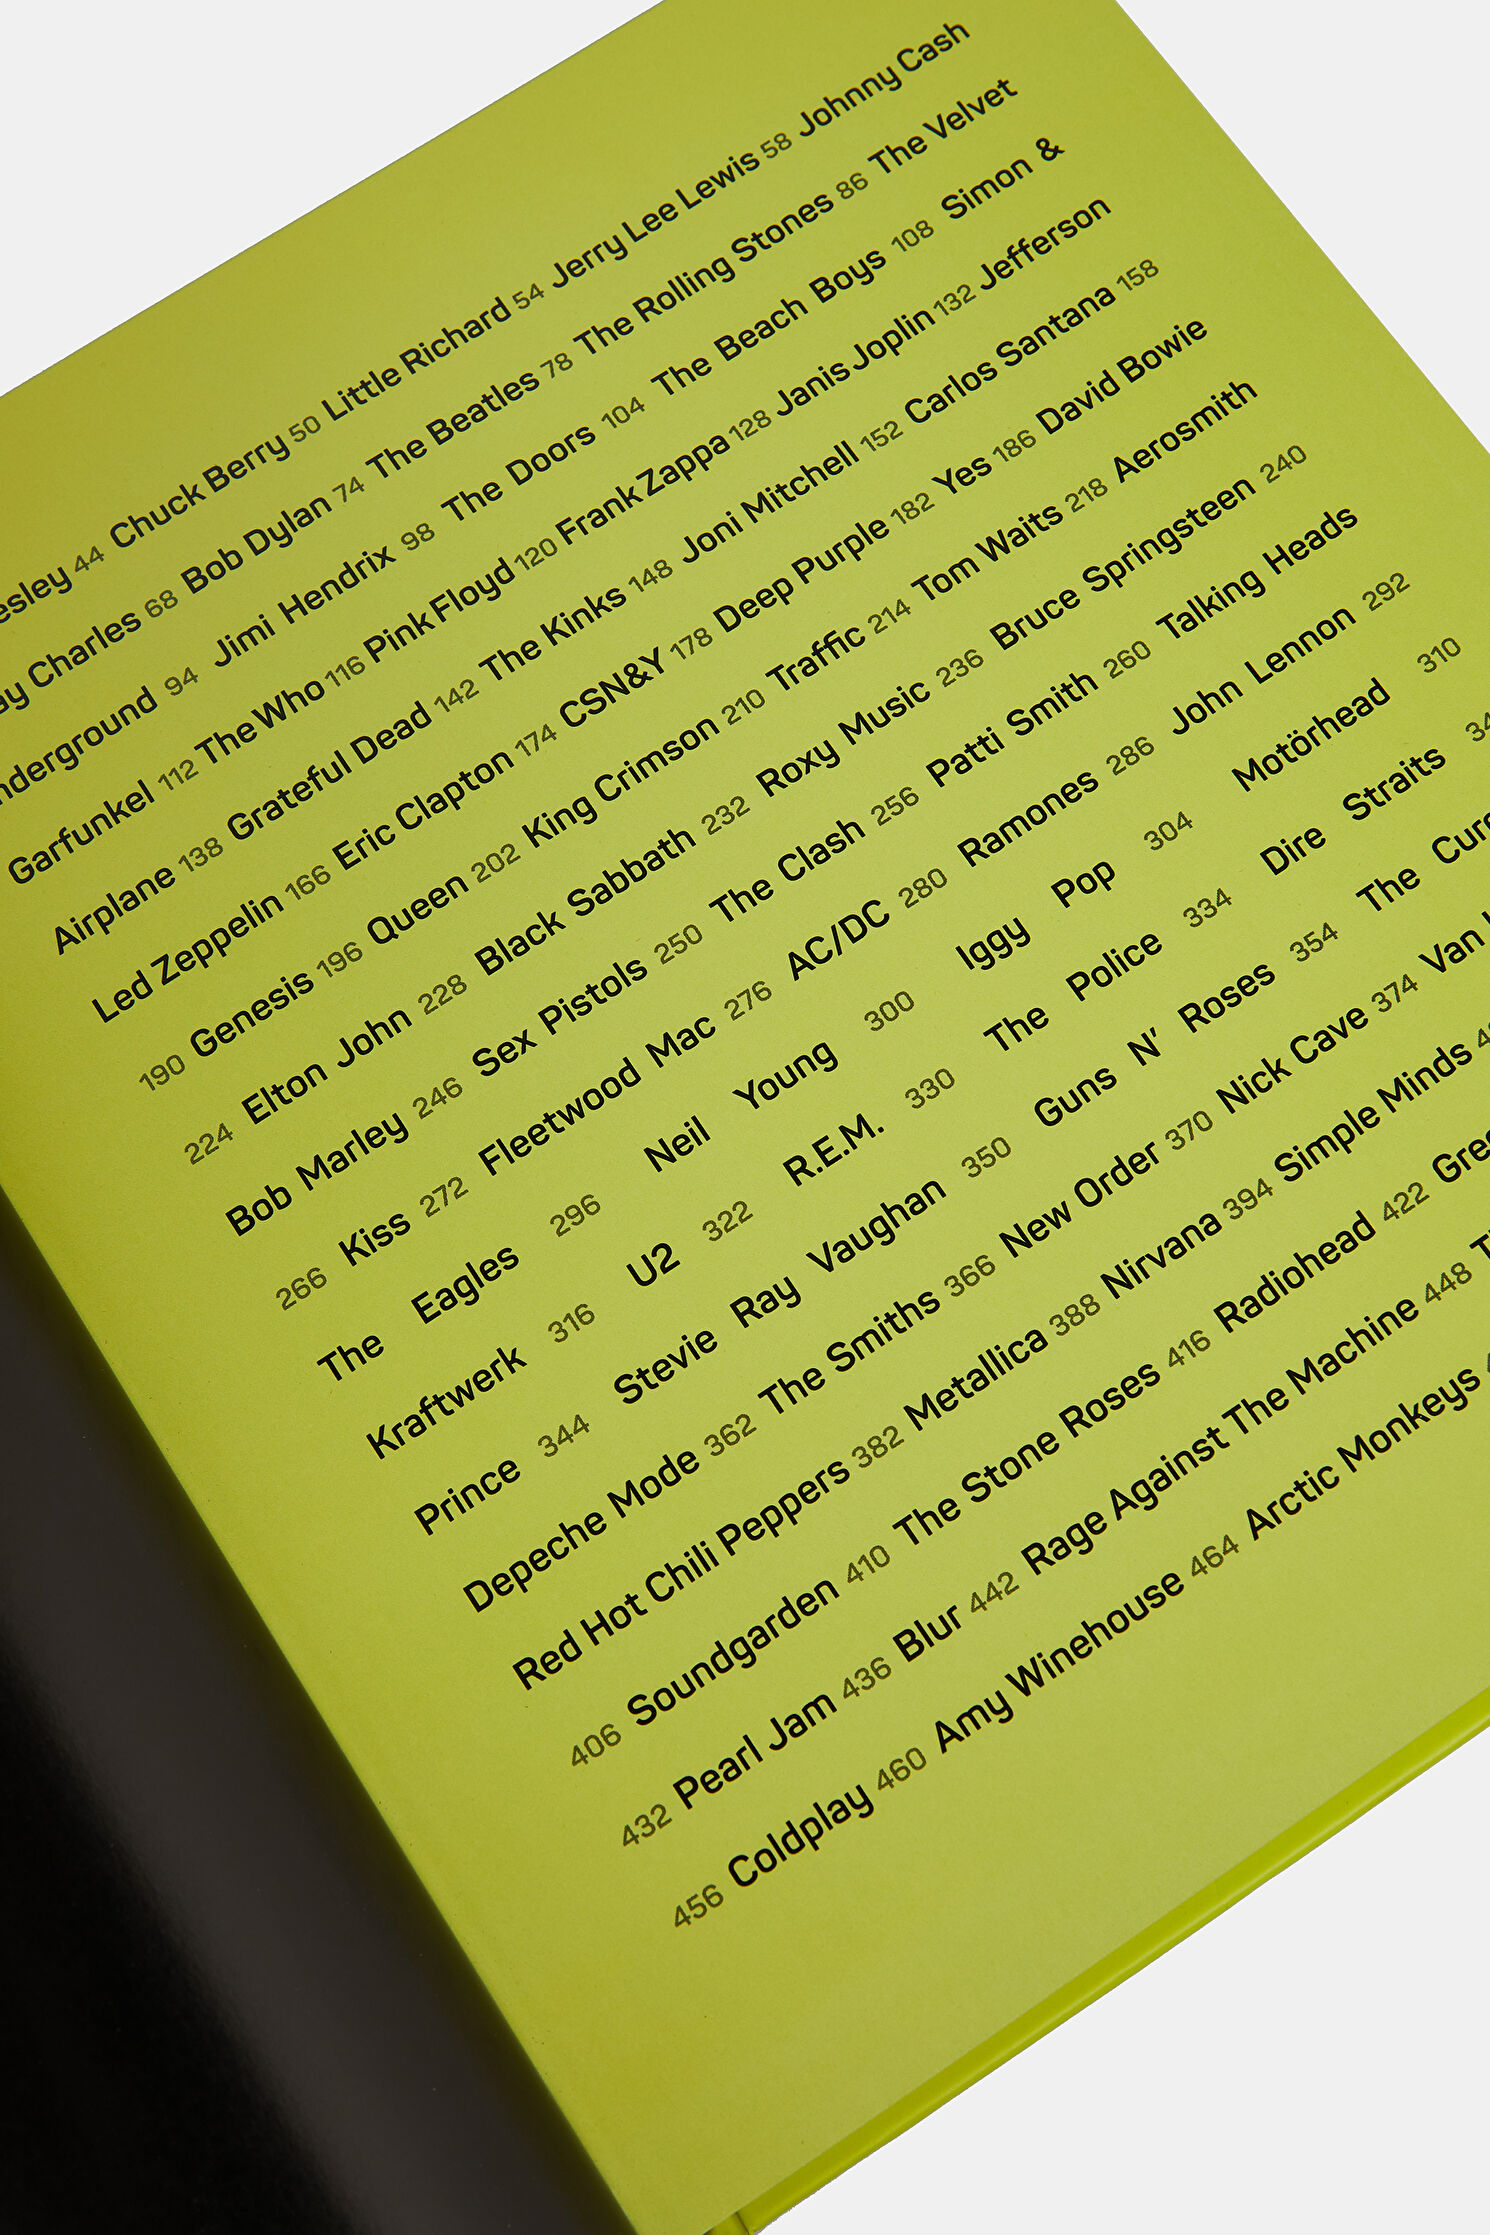 esley 44 Chuck Berry 50 Little Richard 54 Jerry Lee Lewis 58 Johnny Cash
ay Charles 68 Bob Dylan 74 The Beatles 78 The Rolling Stones 86 The Velvet
nderground 94 Jimi Hendrix 98 The Doors 104 The Beach Boys 108 Simon &
Garfunkel 112 The Who 116 Pink Floyd 120 Frank Zappa 128 Janis Joplin 132 Jefferson
Airplane 138 Grateful Dead 142 The Kinks 148 Joni Mitchell 152 Carlos Santana 158
Led Zeppelin 166 Eric Clapton 174 CSN&Y 178 Deep Purple 182 Yes 186 David Bowie
190 Genesis 196 Queen 202 King Crimson 210 Traffic 214 Tom Waits 218 Aerosmith
224 Elton John 228 Black Sabbath 232 Roxy Music 236 Bruce Springsteen 240
Bob Marley 246 Sex Pistols 250 The Clash 256 Patti Smith 260 Talking Heads
266 Kiss 272 Fleetwood Mac 276 AC/DC 280 Ramones 286 John Lennon 292
The Eagles 296 Neil Young 300 Iggy Pop 304 Motörhead 310
Kraftwerk 316 U2 322 R.E.M. 330 The Police 334 Dire Straits 34
Prince 344 Stevie Ray Vaughan 350 Guns N' Roses 354 The Cure
Depeche Mode 362 The Smiths 366 New Order 370 Nick Cave 374 Van
Red Hot Chili Peppers 382 Metallica 388 Nirvana 394 Simple Minds
406 Soundgarden 410 The Stone Roses 416 Radiohead 422 Gre
432 Pearl Jam 436 Blur 442 Rage Against The Machine 448
456 Coldplay 460 Amy Winehouse 464 Arctic Monkeys